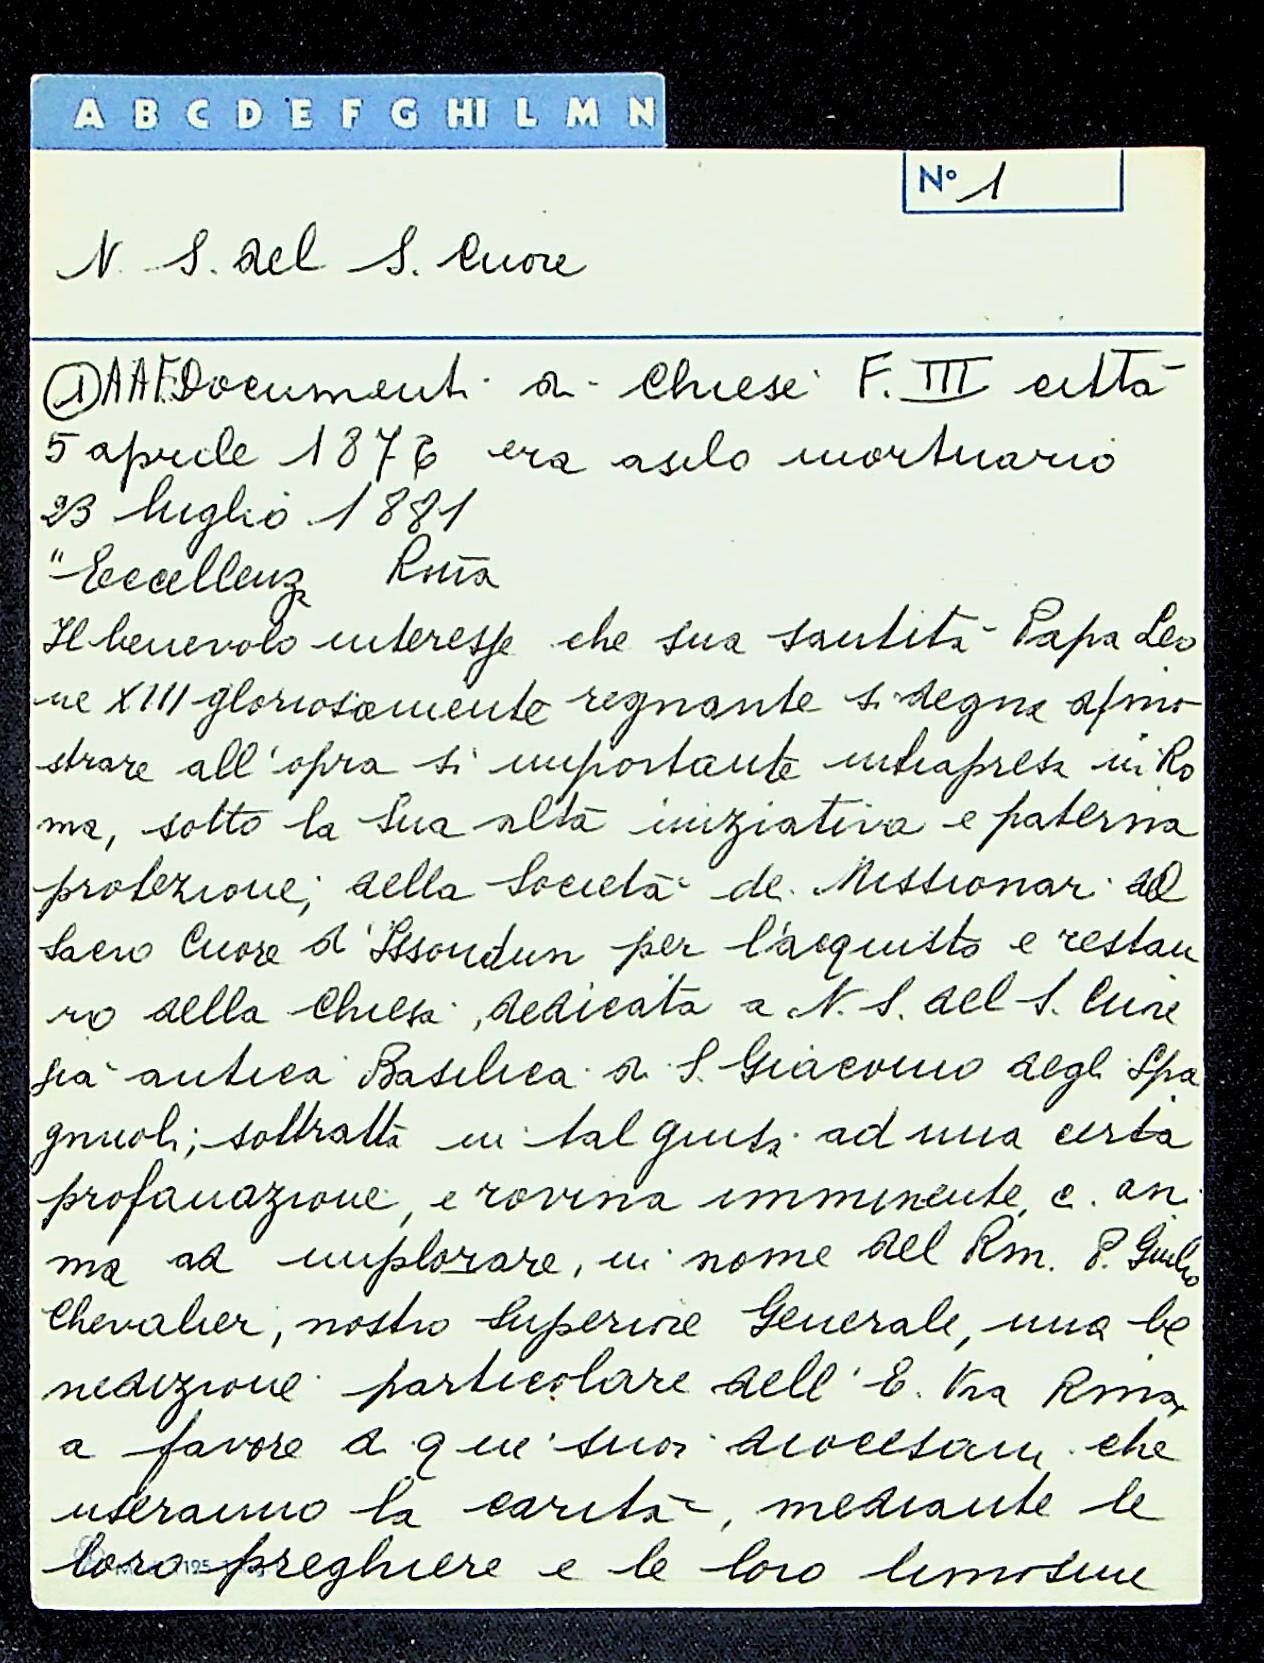 A B C D E F G HI L M N
N° 1
N. S. del S. Cuore
① AAF. Documenti di Chiese F. III città
5 aprile 1876 era asilo mortuario
23 luglio 1881
"Eccellenza Rma
Il benevolo interesse che sua santità Papa Leo
ne XIII gloriosamente regnante si degna dimo
strare all'opra sì importante intrapresa in Ro
ma, sotto la Sua alta iniziativa e paterna
protezione, della Società dei Missionari del
Sacro Cuore d'Issoudun per l'acquisto e restau
ro della Chiesa, dedicata a N. S. del S. Cuore
già antica Basilica di S. Giacomo degli Spa
gnuoli; sottratta in tal guisa ad una certa
profanazione, e rovina imminente, ci ani
ma ad implorare, in nome del Rm. P. Giulio
Chevalier, nostro Superiore Generale, una be
nedizione particolare dell'E. Vra Rma,
a favore di que' suoi diocesani che
useranno la carità, mediante le
loro preghiere e le loro limosine